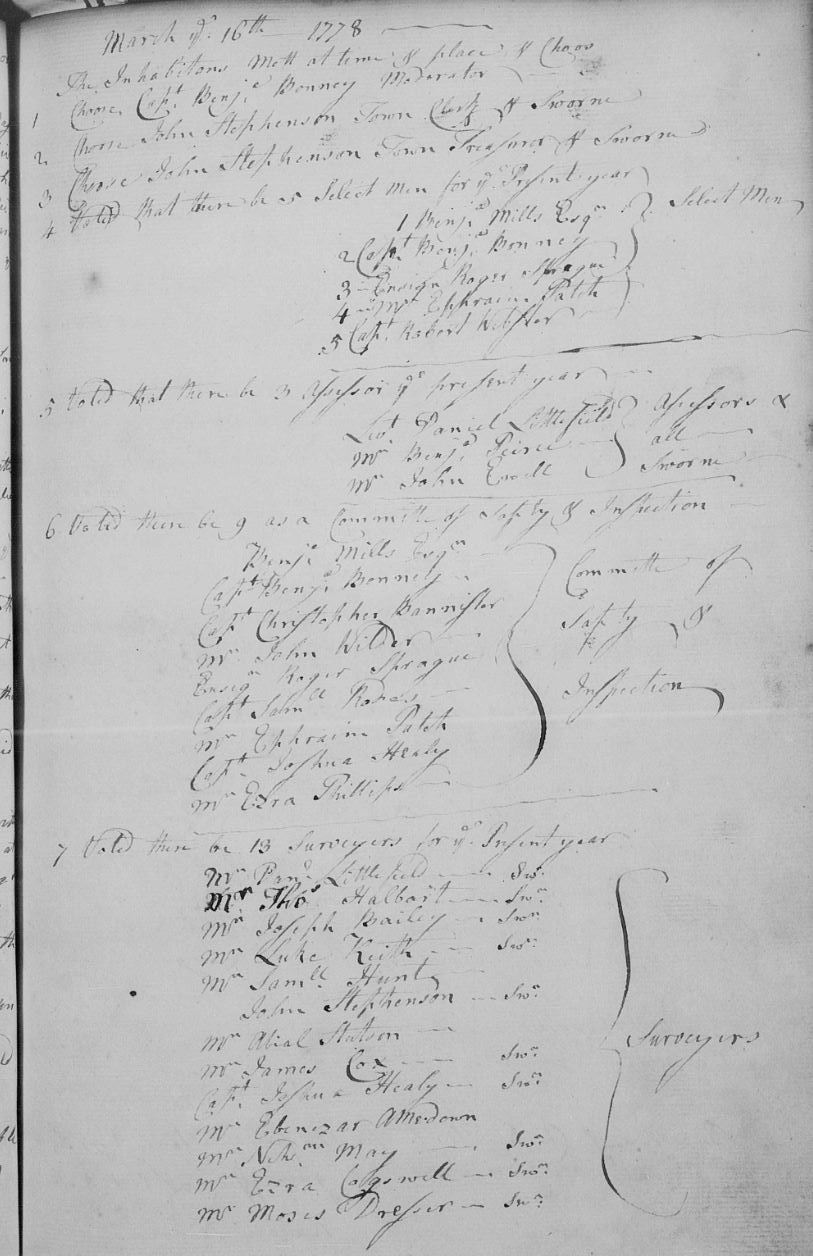 March yᵉ 16th 1778
The Inhabitons Mett at time & place & Choos
1 Choose Capt Benjᵃ Bonney Moderator
2 Choose John Stephenson Town Clerk & Sworne
3 Choose John Stephenson Town Treasurer & Sworne
4 Voted that there be 5 Select men for yᵉ Present year
1 Benjᵃ Mills Esqʳ
2 Capt Benjᵃ Bonney
3 Ensign Roger Sprague
4 Mʳ Ephraim Patch
5 Capt Robert Webster
Select Men
5 Voted that there be 3 Assessors yᵉ present year
Lieut Daniel Littlefield
Mʳ Benjᵃ Peirce
Mʳ John
Assessors &
all
Sworne
6 Voted there be 9 as a Committe of Safty & Inspection
Benjᵃ Mills Esqʳ
Capt Benjᵃ Bonney
Capt Christopher Bannister
Mʳ John Wilder
Ensigⁿ Roger Sprague
Capt Samˡˡ
Mʳ Ephraim Patch
Capt Joshua Healy
Mʳ Ezra Phillips
Committe of
Safty &
Inspection
7 Voted there be 13 Surveyers for yᵉ Present year
Mʳ Danˡ Littlefield Swoⁿ
Mʳ Thoˢ Halbart Swoⁿ
Mʳ Joseph Bailey Swoⁿ
Mʳ Luke Keith Swoⁿ
Mʳ Samˡˡ Hunt
John Stephenson Swoⁿ
Mʳ Abial Statson
Mʳ James Cox Swoⁿ
Capt Joshua Healy Swoⁿ
Mʳ Ebenezar Amedown
Mʳ Nehᵐ May Swoⁿ
Mʳ Ezra Cogswell Swoⁿ
Mʳ Moses Dresser Swoⁿ
Surveyers